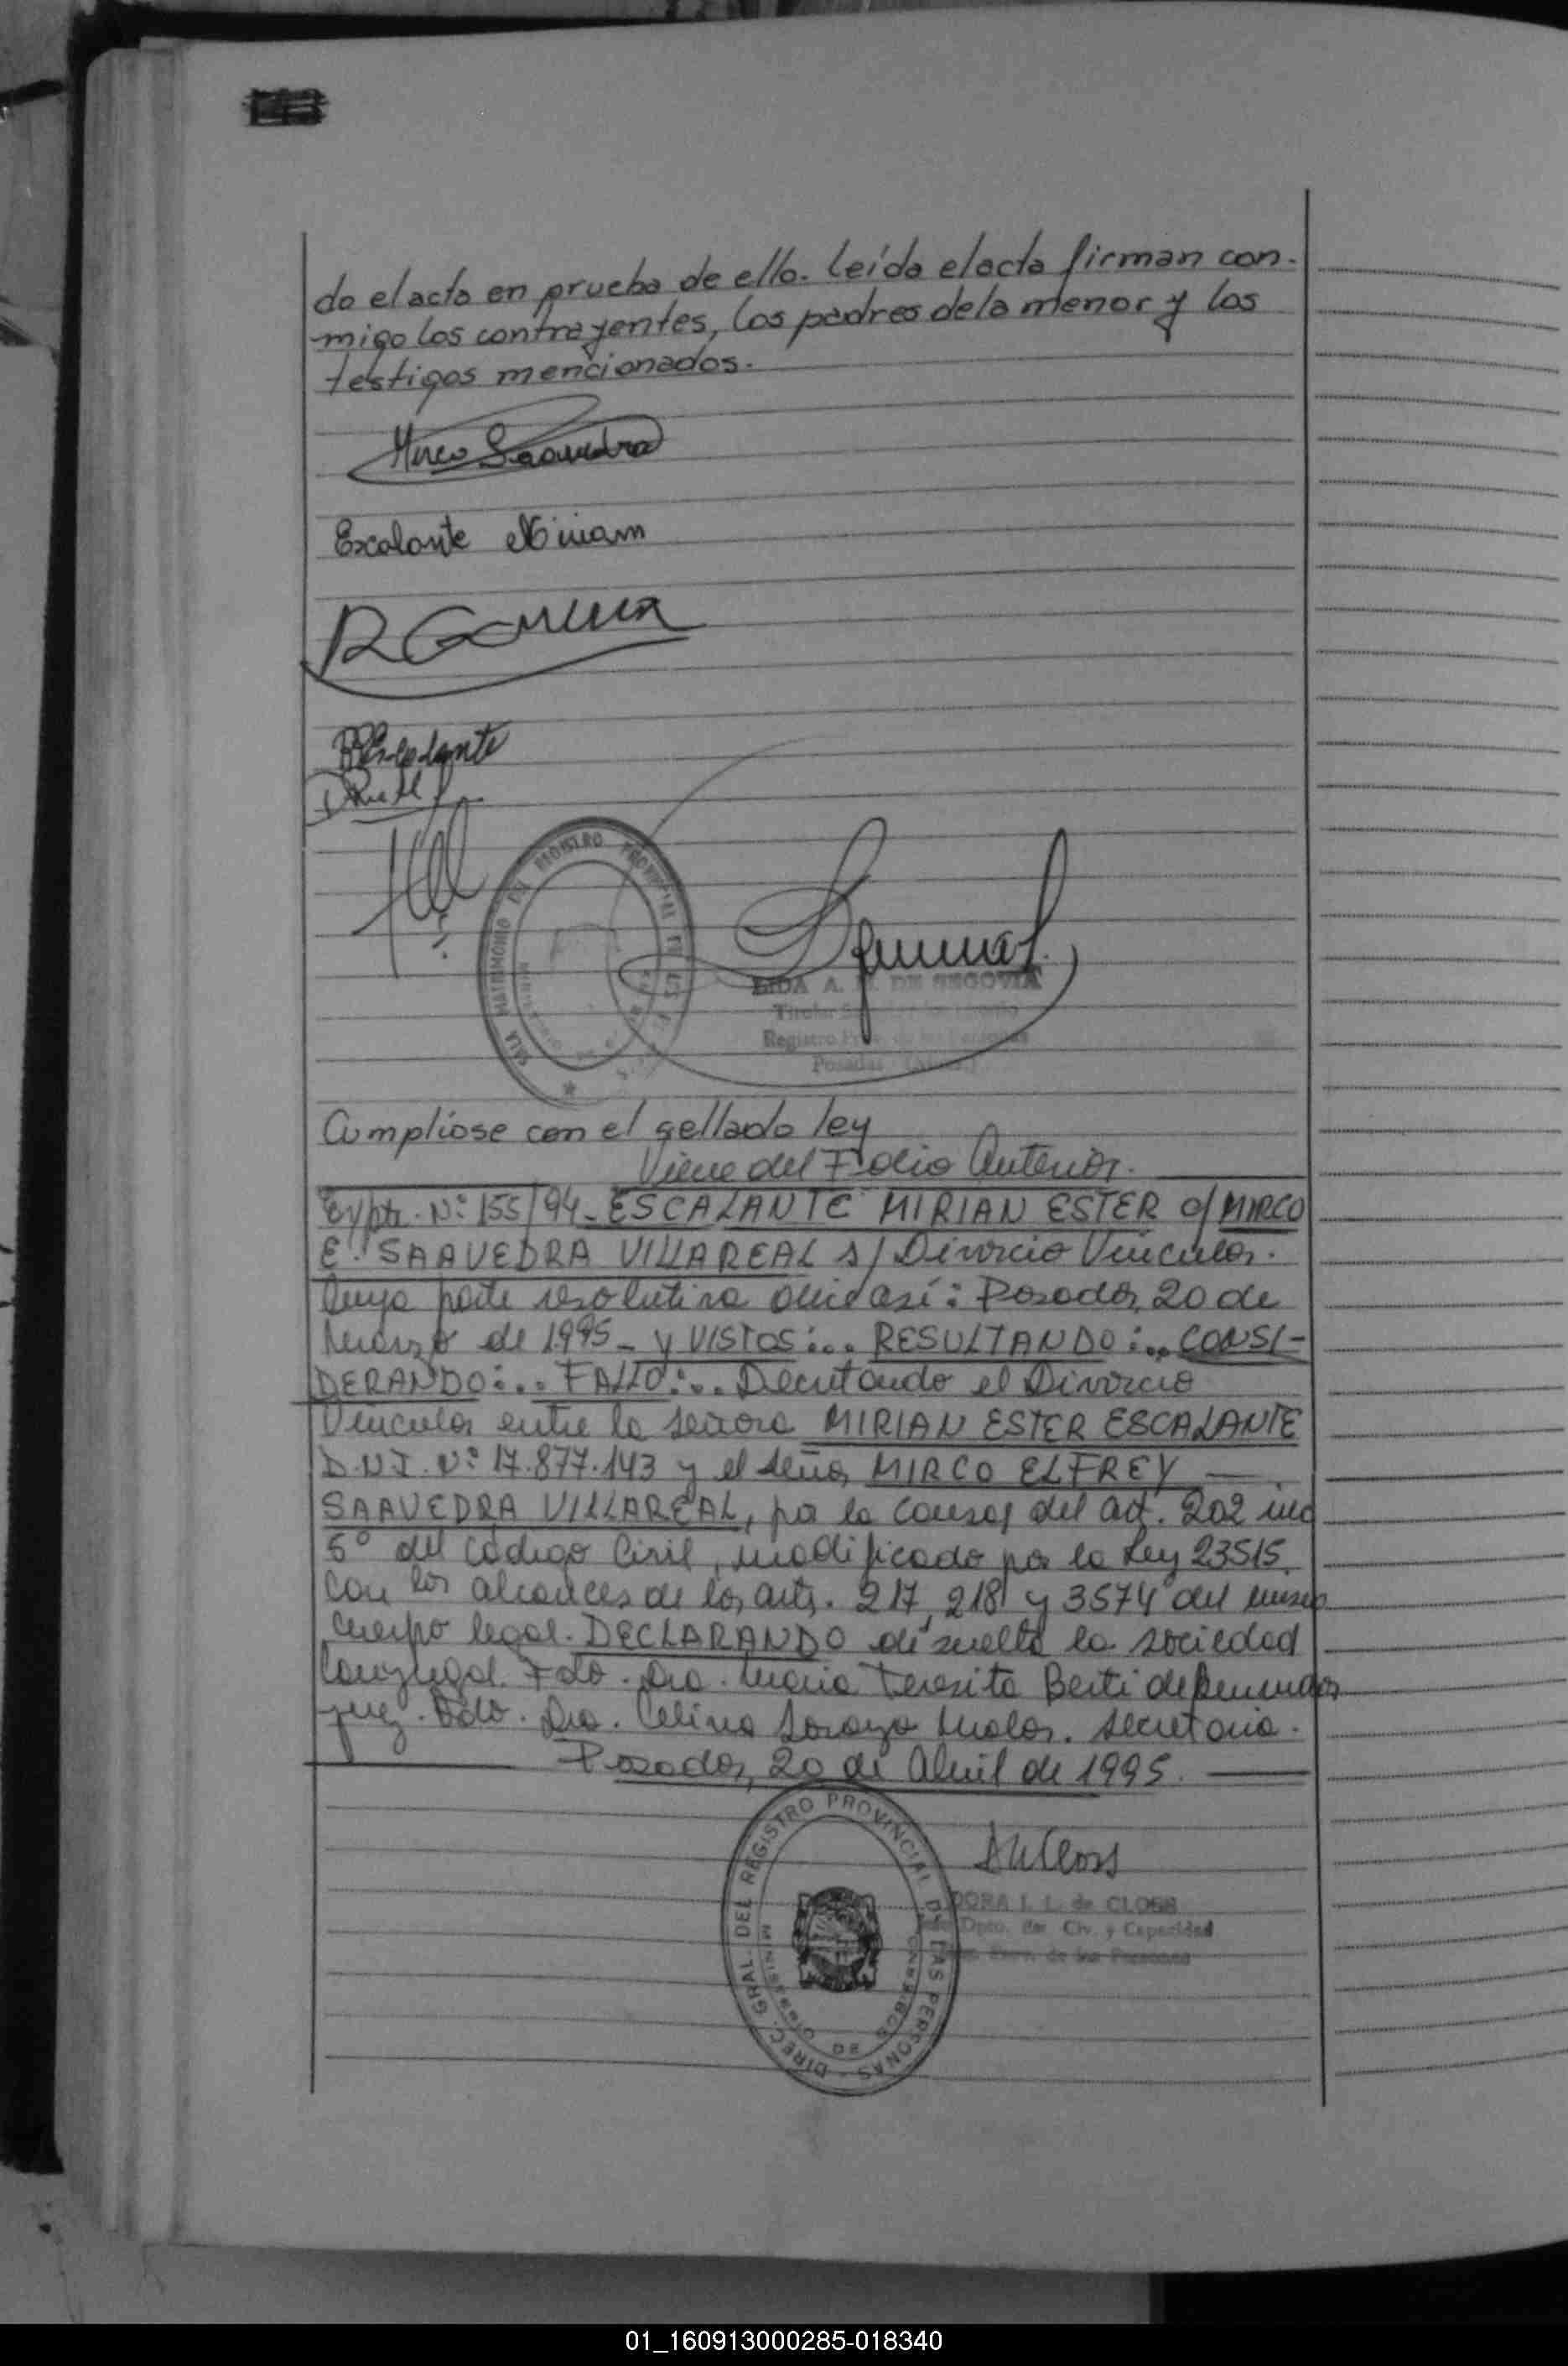 do el acto en prueba de ello. leída el acta firman con-
migo los contrayentes, los padres de la menor y los
testigos mencionados.
Mirco Saavedra
Escalante Miriam
Escalante
SALA MATRIMONIO DEL REGISTRO PROVINCIAL DE LAS
A. DE SEGOVIA
Titular
Registro
Posadas
Cumplióse con el sellado ley
Viene del Folio Anterior.
Expte. Nº 155/94 - ESCALANTE MIRIAN ESTER c/ MIRCO
E. SAAVEDRA VILLAREAL s/ Divorcio Vincular.
Cuya parte resolutiva dice así: Posadas, 20 de
Marzo de 1995 - Y VISTOS:... RESULTANDO:... CONSI-
DERANDO:... FALLO:... Decretando el Divorcio
Vincular entre la señora MIRIAN ESTER ESCALANTE
D.N.I. Nº 17.877.143 y el señor MIRCO ELFREY
SAAVEDRA VILLAREAL, por la causal del art. 202 inc
5º del Código Civil, modificado por la Ley 23515
con los alcances de los arts. 217, 218 y 3574 del mismo
cuerpo legal. DECLARANDO disuelta la sociedad
Conyugal. Fdo. Dra. María Teresita Berti de
Juez. Fdo. Dra. Celina Secretaria.
Posadas, 20 de Abril de 1995.
DIREC. GRAL. DEL REGISTRO PROVINCIAL DE LAS PERSONAS - MINISTERIO DE GOBIERNO
DORA I. L. de CLOSS
Dpto. Est. Civ. y Capacidad
de las Personas
01_160913000285-018340